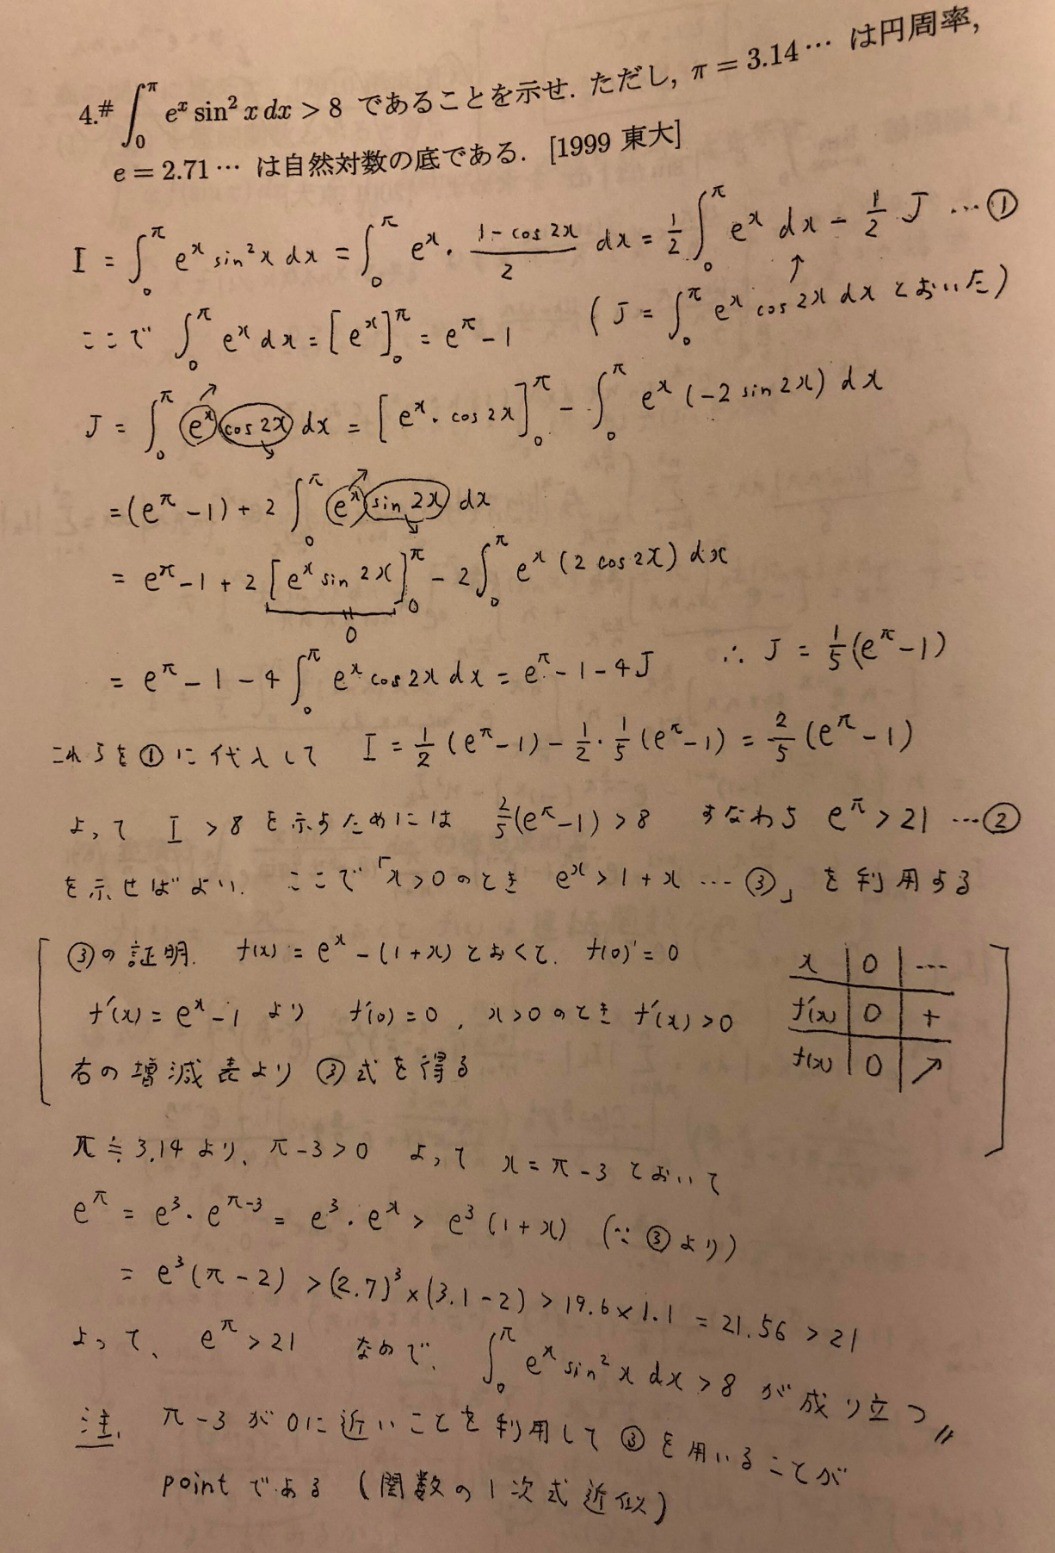 4.# ∫₀^π eˣ sin² x dx > 8 であることを示せ. ただし, π = 3.14⋯ は円周率,
e = 2.71⋯ は自然対数の底である. [1999 東大]
I = ∫₀^π eˣ sin²x dx = ∫₀^π eˣ・(1-cos2x)/2 dx = 1/2 ∫₀^π eˣ dx - 1/2 J …①
ここで ∫₀^π eˣ dx = [eˣ]₀^π = e^π - 1 (J = ∫₀^π eˣ cos2x dx とおいた)
J = ∫₀^π eˣ cos2x dx = [eˣ・cos2x]₀^π - ∫₀^π eˣ(-2 sin2x) dx
= (e^π - 1) + 2∫₀^π eˣ sin2x dx
= e^π - 1 + 2[eˣ sin2x]₀^π - 2∫₀^π eˣ(2cos2x) dx
0
= e^π - 1 - 4∫₀^π eˣ cos2x dx = e^π - 1 - 4J ∴ J = 1/5(e^π - 1)
これらを①に代入して I = 1/2(e^π - 1) - 1/2・1/5(e^π - 1) = 2/5(e^π - 1)
よって I > 8 を示すためには 2/5(e^π - 1) > 8 すなわち e^π > 21 …②
を示せばよい. ここで「x>0のとき eˣ > 1+x …③」を利用する
③の証明. f(x) = eˣ - (1+x) とおくと、f(0) = 0
f'(x) = eˣ - 1 より f'(0) = 0 , x>0のとき f'(x) > 0
右の増減表より ③式を得る
x | 0 | …
f'(x) | 0 | +
f(x) | 0 | ↗
π ≒ 3.14 より、π-3>0 よって x = π-3 とおいて
e^π = e³・e^(π-3) = e³・eˣ > e³(1+x) (∵ ③より)
= e³(π-2) > (2.7)³×(3.1-2) > 19.6×1.1 = 21.56 > 21
よって、 e^π > 21 なので、 ∫₀^π eˣ sin²x dx > 8 が成り立つ〃
注. π-3が0に近いことを利用して③を用いることが
pointである (関数の1次式近似)